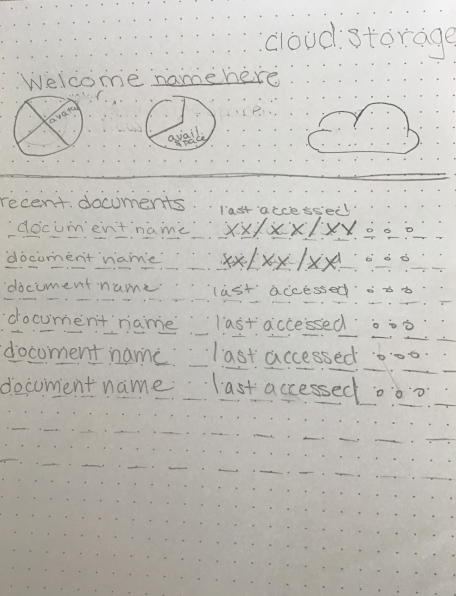 cloud storage
Welcome name here
avail
avail space
recent documents last accessed
document name xx/xx/xx
document name xx/xx/xx
document name last accessed
document name last accessed
document name last accessed
document name last accessed